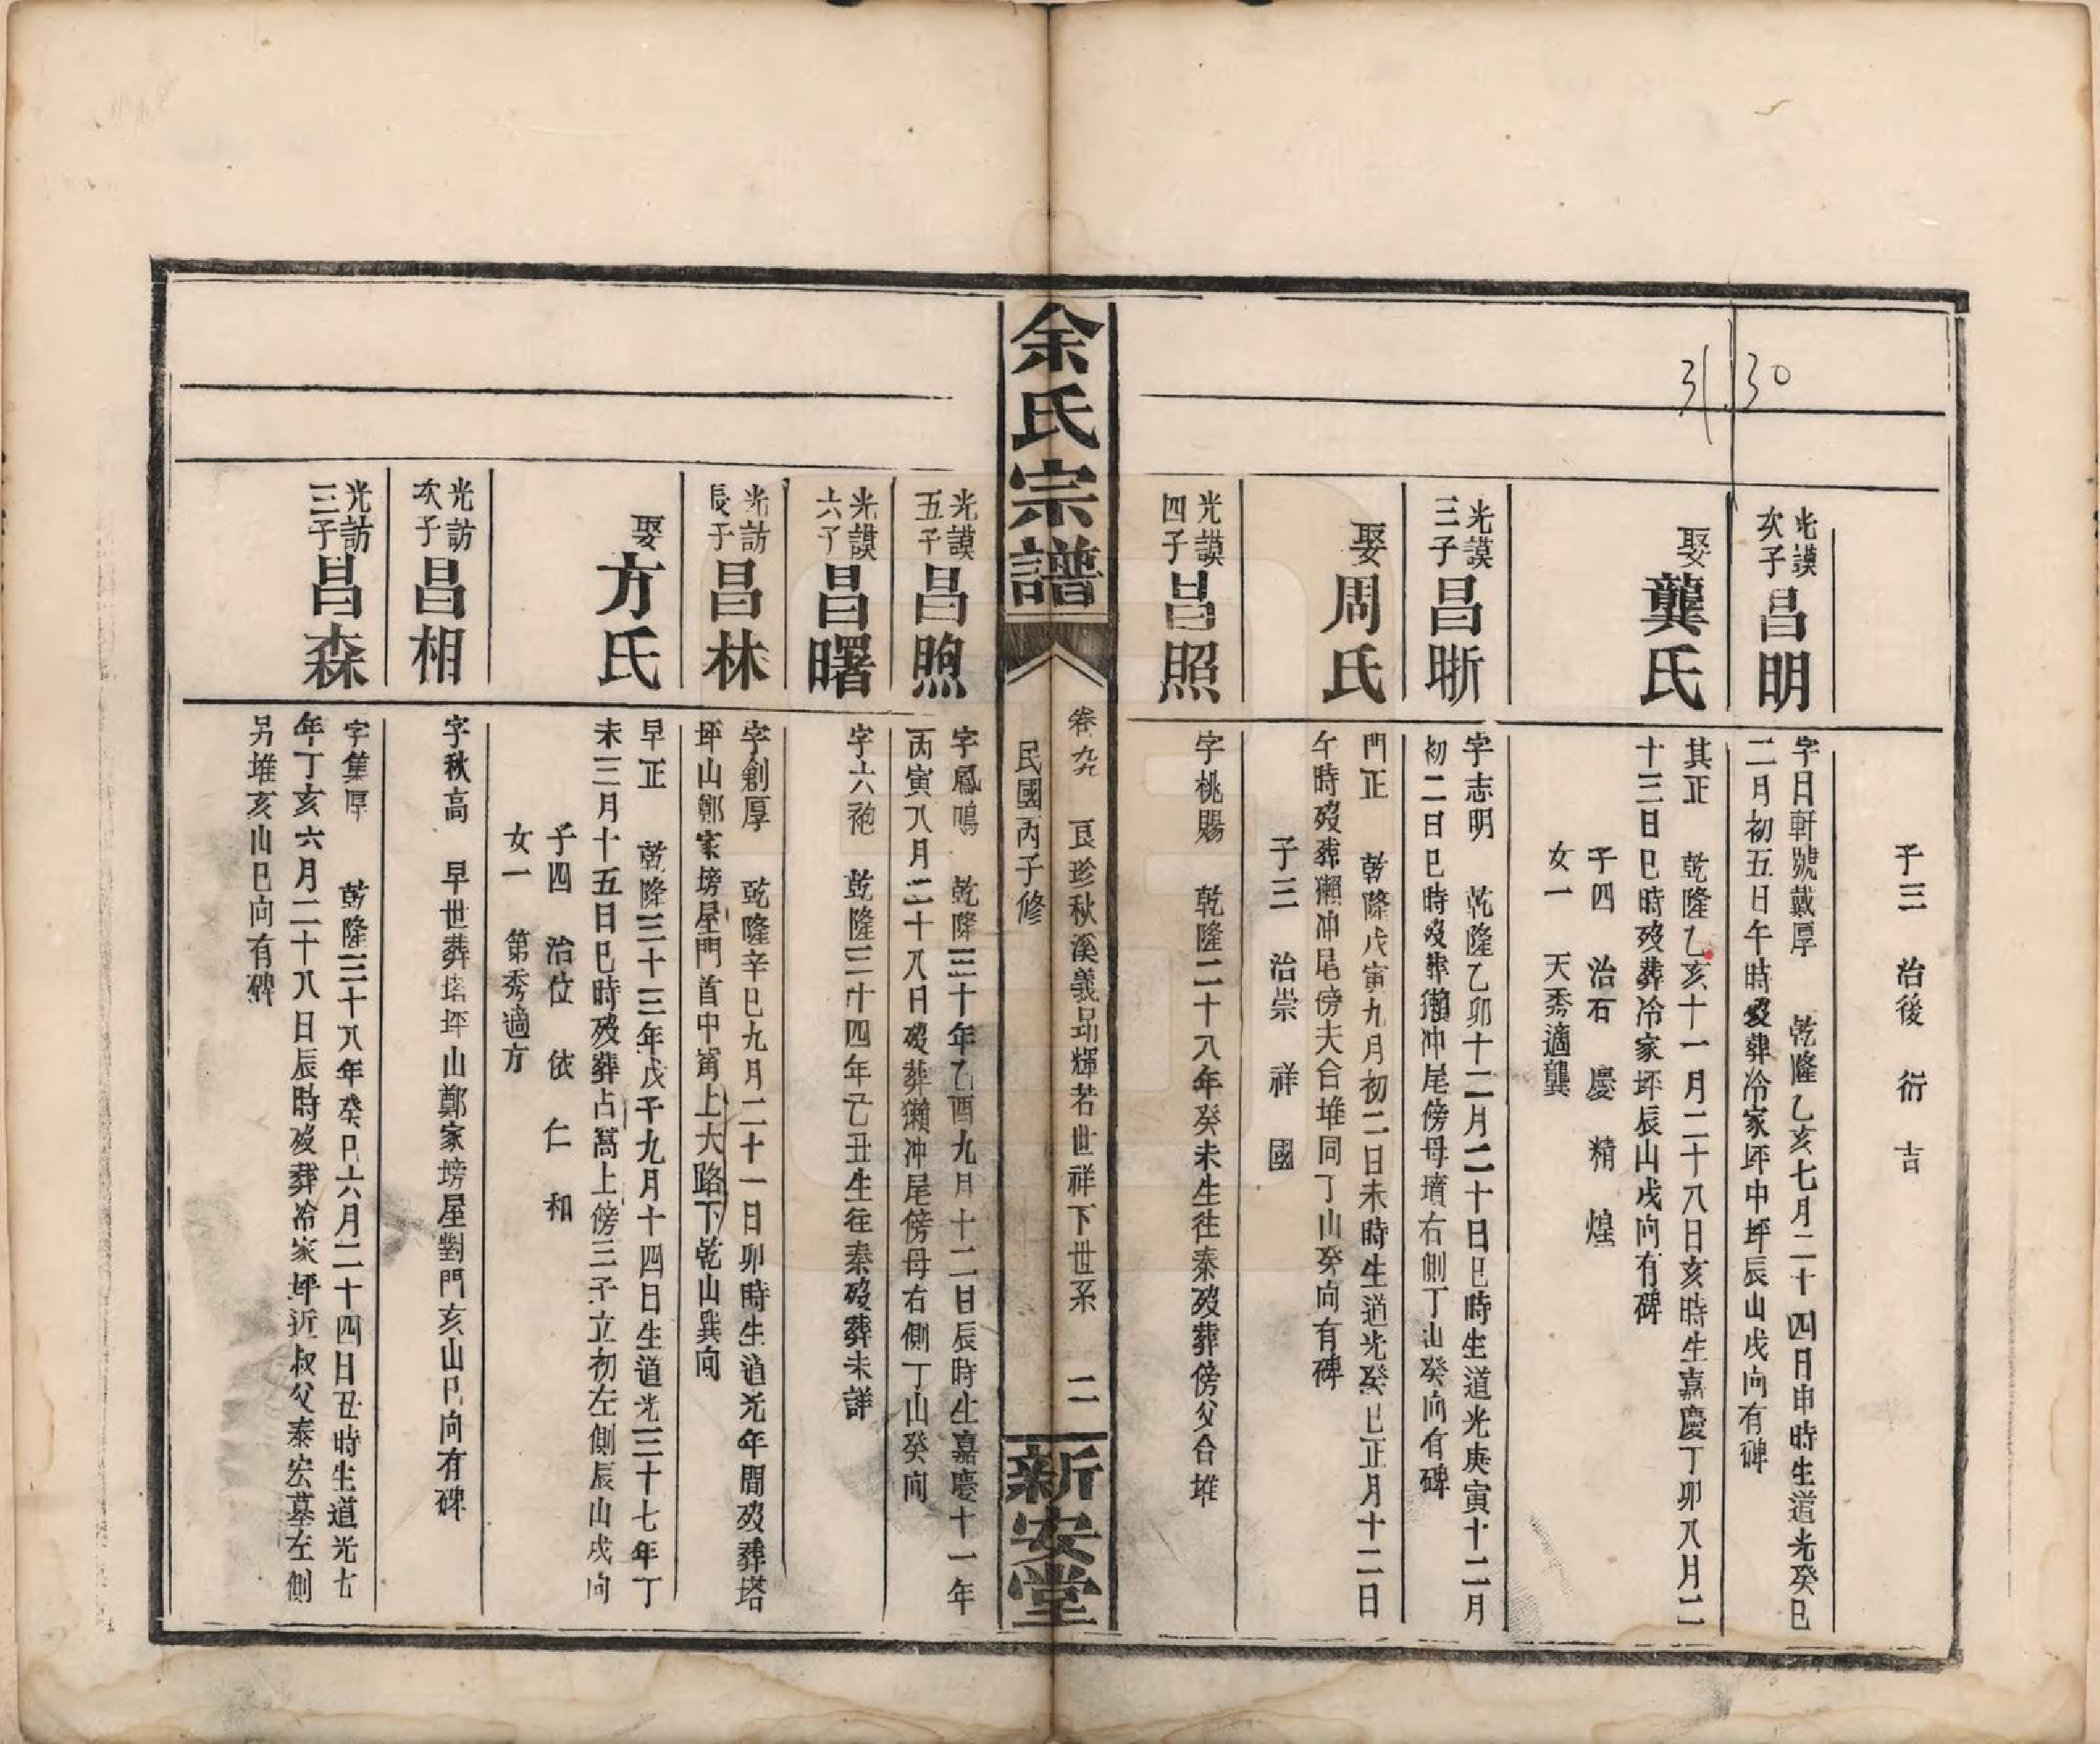 30
31
子三 治後 衍 吉
光謨次子昌明
字日軒號戴厚 乾隆乙亥七月二十四日申時生道光癸巳
二月初五日午時歿葬冷家坪中坪辰山戌向有碑
娶龔氏
其正 乾隆乙亥十一月二十八日亥時生嘉慶丁卯八月二
十三日巳時歿葬冷家坪辰山戌向有碑
子四 治石 慶 精 煌
女一 天秀適龔
光謨三子昌晣
字志明 乾隆乙卯十二月二十日巳時生道光庚寅十二月
初二日巳時歿葬獺冲尾傍母墳右側丁山癸向有碑
娶周氏
門正 乾隆戊寅九月初二日未時生道光癸巳正月十二日
午時歿葬獺冲尾傍夫合堆同丁山癸向有碑
子三 治崇 祥 國
光謨四子昌照
字桃賜 乾隆二十八年癸未生往秦歿葬傍父合堆
余氏宗譜
卷九 良珍秋溪義昻輝若世祥下世系 二
民國丙子修
新安堂
光謨五子昌煦
字鳳鳴 乾隆三十年乙酉九月十二日辰時生嘉慶十一年
丙寅八月二十八日歿葬獺冲尾傍母右側丁山癸向
光謨六子昌曙
字六袍 乾隆三十四年己丑生往秦歿葬未詳
光訪長子昌林
字創厚 乾隆辛巳九月二十一日卯時生道光年間歿葬塔
坪山鄭家塝屋門首中嵛上大路下乾山巽向
娶方氏
早正 乾隆三十三年戊子九月十四日生道光三十七年丁
未三月十五日巳時歿葬占嵩上傍三子立初左側辰山戌向
子四 治位 依 仁 和
女一 第秀適方
光訪次子昌相
字秋高 早世葬塔坪山鄭家塝屋對門亥山巳向有碑
光訪三子昌森
字集厚 乾隆三十八年癸巳六月二十四日丑時生道光七
年丁亥六月二十八日辰時歿葬冷家坪近叔父泰宏墓左側
另堆亥山巳向有碑